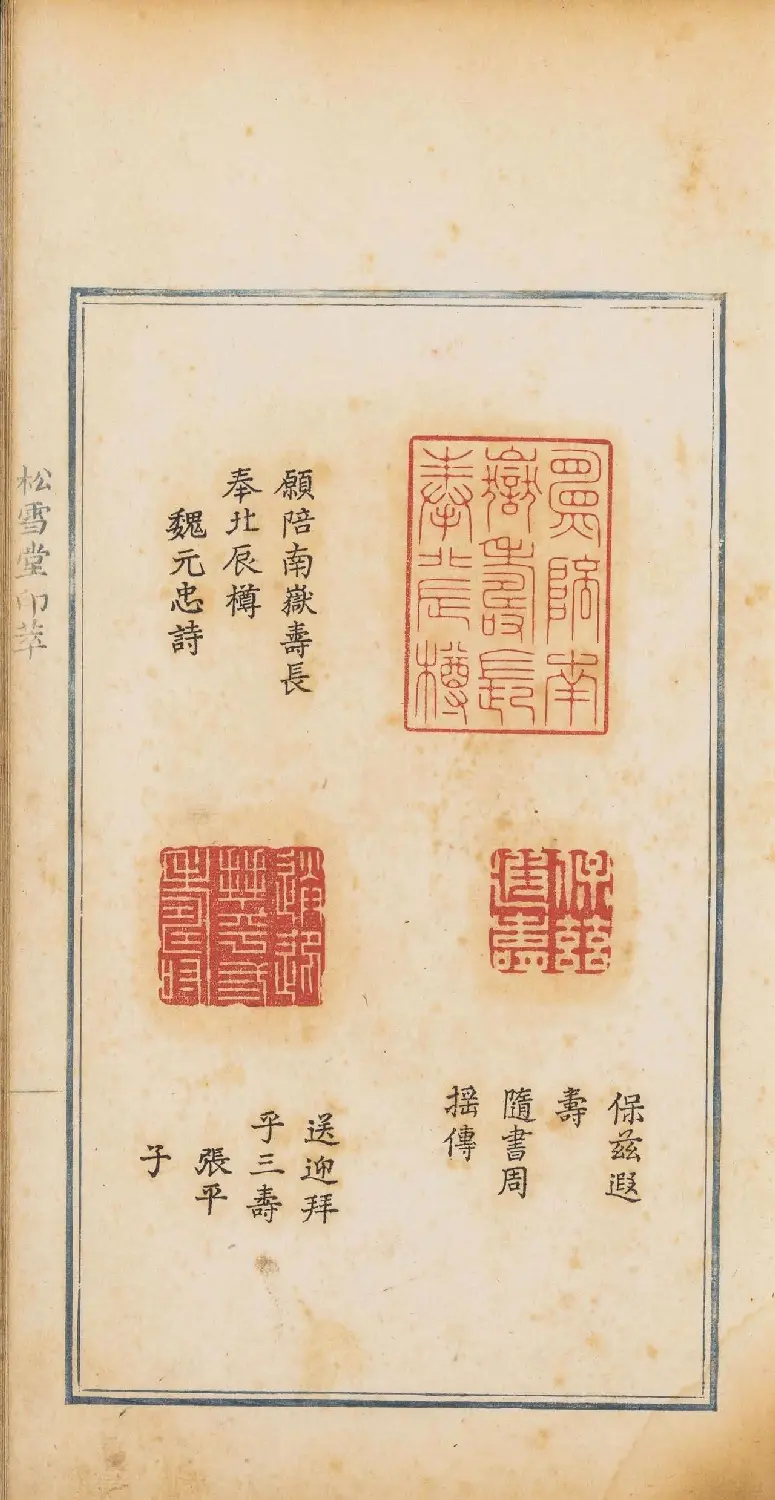 願陪南嶽壽長
奉北辰樽
魏元忠詩
保兹遐
壽
隨書周
搖傳
送迎拜
乎三壽
張平
子
松雪堂印萃